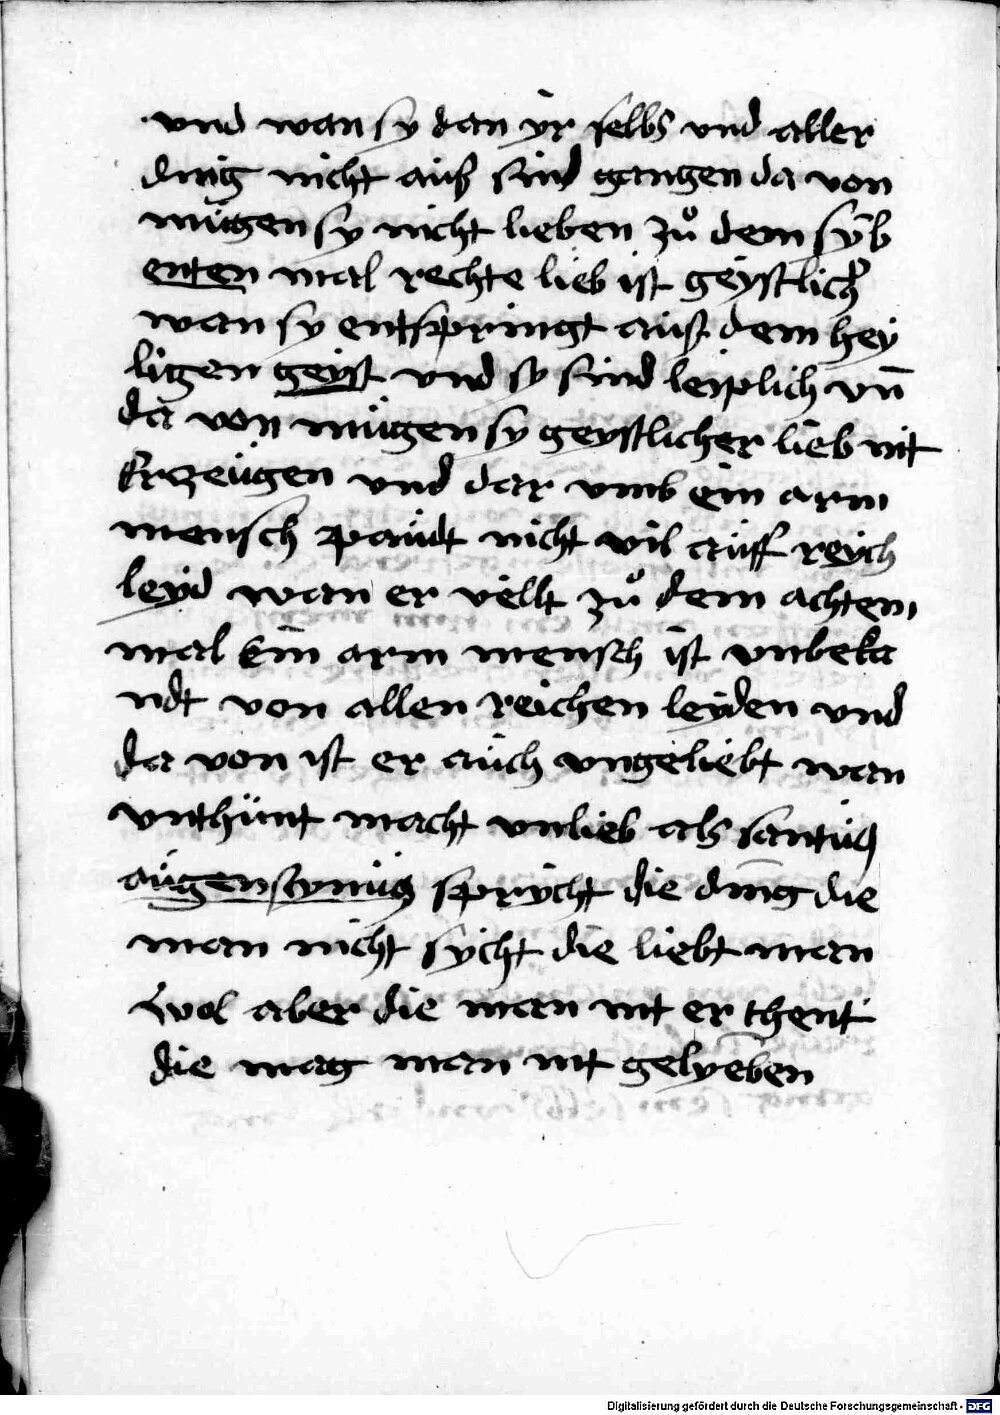 vnd wan sy dan yr selbs vnd aller
ding nicht auß sind gangen da von
mügen sy nicht lieben zů dem syb
enten mal rechte lieb ist geystlicħ
wan sy entspringt auß dem hey
ligen geyst vnd sy sind leiplich vn̄
da von mügen sy geystlicher lieb nit
Erzeügen vnd dar vmb ein arm
mensch paüdt nicht vil aüff reych
leyd wan er velt zů dem achten
mal Ein arm mensch ist vnbeka
ndt von allen reichen leyden vnd
da von ist er aüch vngeliebt wan
vnthünt macht vnlieb als santüs
aügenstynüs sprycht die ding die
man nicht sycht die liebt man
wol aber die man nit er thent
die mag man nit gelyeben
Digitalisierung gefördert durch die Deutsche Forschungsgemeinschaft - DFG